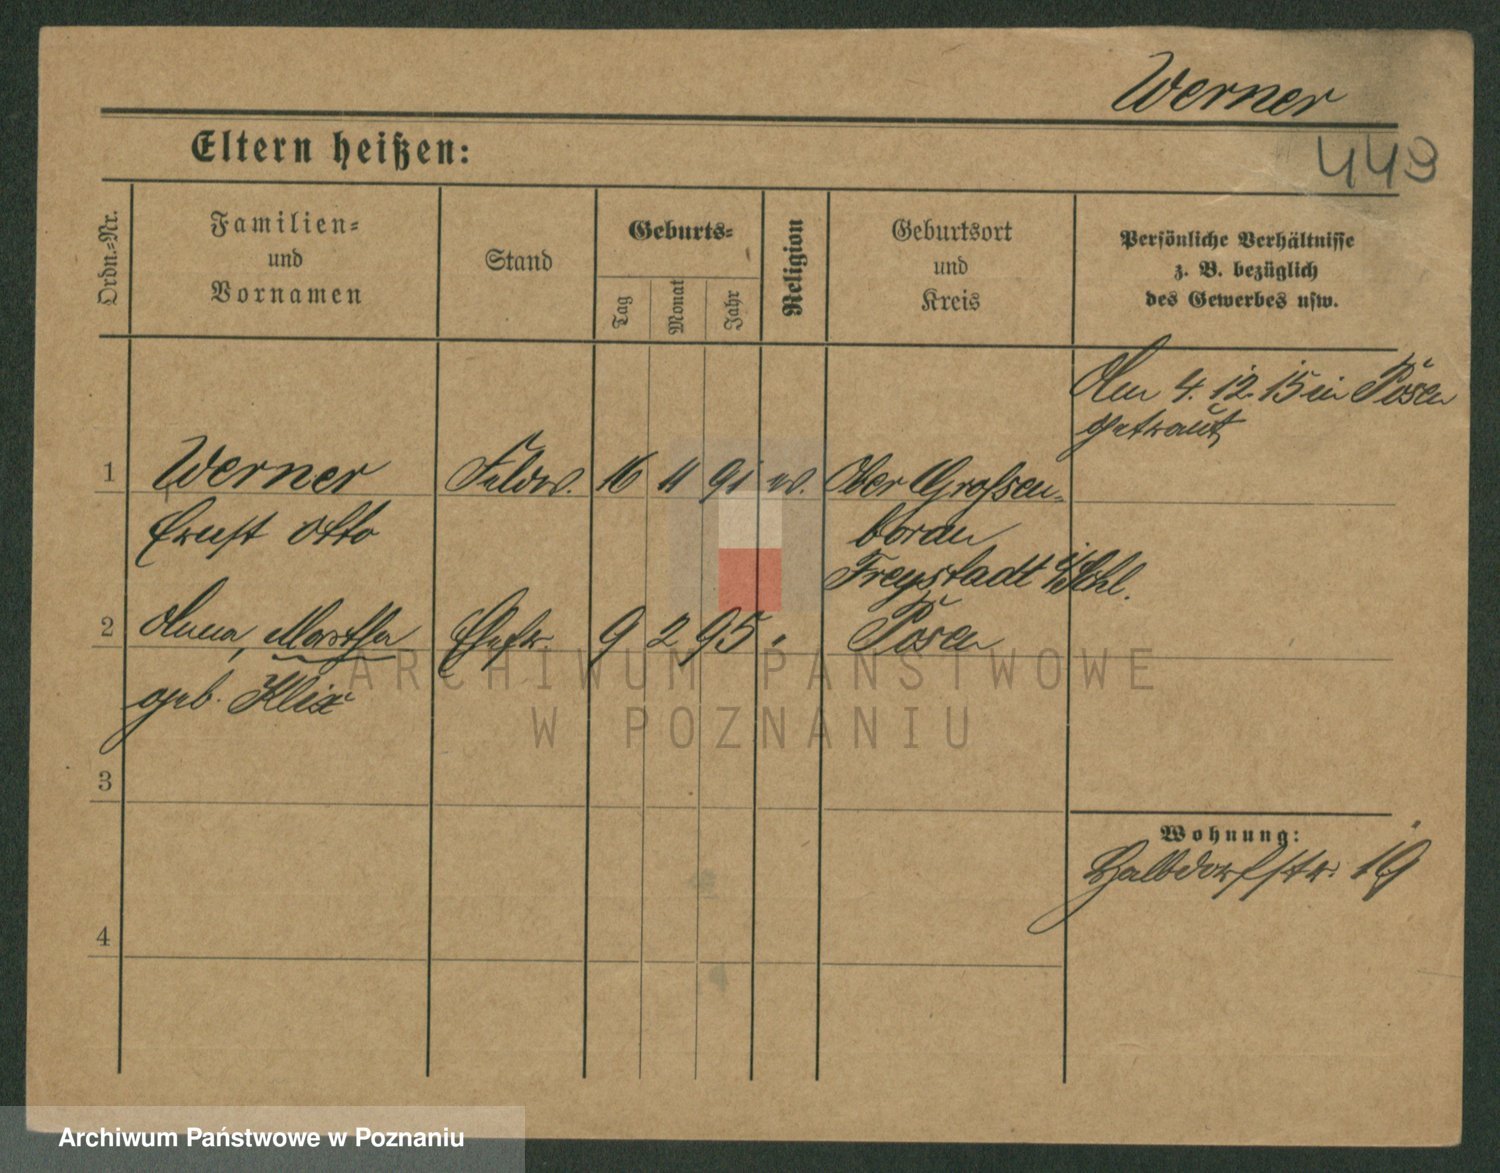 Werner
449
Eltern heißen:
Ordn.-Nr.
Familien-
und
Vornamen
Stand
Geburts-
Tag
Monat
Jahr
Religion
Geburtsort
und
Kreis
Persönliche Verhältnisse
z. B. bezüglich
des Gewerbes usw.
Am 4. 12. 15 in Posen
getraut
1 Werner Feldw. 16 11 91 ev. Ober Grossen-
Ernst Otto boran
Freystadt i/Schl.
2 Anna, Martha Ehefr. 9 2 95 " Posen
geb. Klix
3
4
Wohnung:
Halbdorfstr. 19
ARCHIWUM PAŃSTWOWE
W POZNANIU
Archiwum Państwowe w Poznaniu